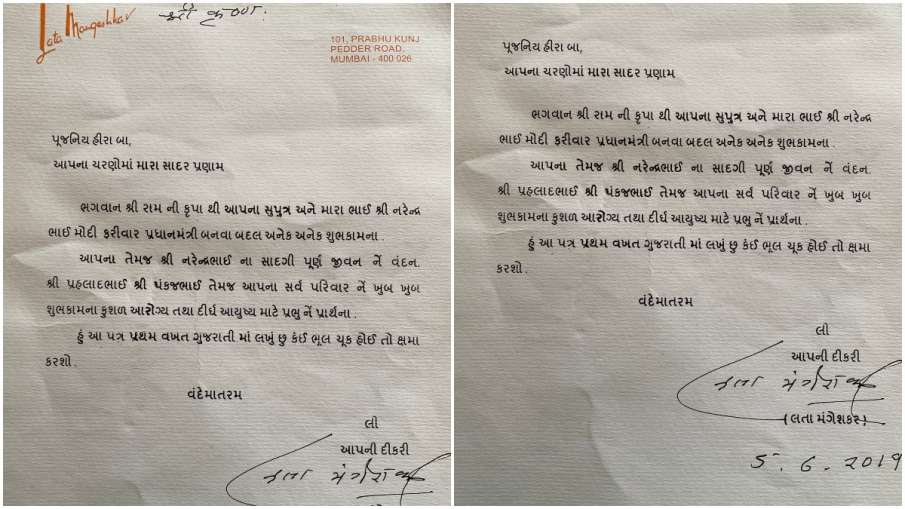 Lata Mangeshkar
श्री कृष्ण.
101, PRABHU KUNJ
PEDDER ROAD,
MUMBAI - 400 026
પૂજનિય હીરા બા,
આપના ચરણોમાં મારા સાદર પ્રણામ
ભગવાન શ્રી રામ ની કૃપા થી આપના સુપુત્ર અને મારા ભાઈ શ્રી નરેન્દ્ર
ભાઈ મોદી ફરીવાર પ્રધાનમંત્રી બનવા બદલ અનેક અનેક શુભકામના .
આપના તેમજ શ્રી નરેન્દ્રભાઈ ના સાદગી પૂર્ણ જીવન નેં વંદન.
શ્રી પ્રહલાદભાઈ શ્રી પંકજભાઈ તેમજ આપના સર્વ પરિવાર નેં ખુબ ખુબ
શુભકામના કુશળ આરોગ્ય તથા દીર્ઘ આયુષ્ય માટે પ્રભુ નેં પ્રાર્થના .
હું આ પત્ર પ્રથમ વખત ગુજરાતી માં લખું છુ કંઈ ભૂલ ચૂક હોઈ તો ક્ષમા
કરશો .
વંદેમાતરમ
લી
આપની દીકરી
लता मंगेशकर
પૂજનિય હીરા બા,
આપના ચરણોમાં મારા સાદર પ્રણામ
ભગવાન શ્રી રામ ની કૃપા થી આપના સુપુત્ર અને મારા ભાઈ શ્રી નરેન્દ્ર
ભાઈ મોદી ફરીવાર પ્રધાનમંત્રી બનવા બદલ અનેક અનેક શુભકામના .
આપના તેમજ શ્રી નરેન્દ્રભાઈ ના સાદગી પૂર્ણ જીવન નેં વંદન.
શ્રી પ્રહલાદભાઈ શ્રી પંકજભાઈ તેમજ આપના સર્વ પરિવાર નેં ખુબ ખુબ
શુભકામના કુશળ આરોગ્ય તથા દીર્ઘ આયુષ્ય માટે પ્રભુ નેં પ્રાર્થના .
હું આ પત્ર પ્રથમ વખત ગુજરાતી માં લખું છુ કંઈ ભૂલ ચૂક હોઈ તો ક્ષમા
કરશો .
વંદેમાતરમ
લી
આપની દીકરી
लता मंगेशकर
( લતા મંગેશકર )
5. 6. 2019